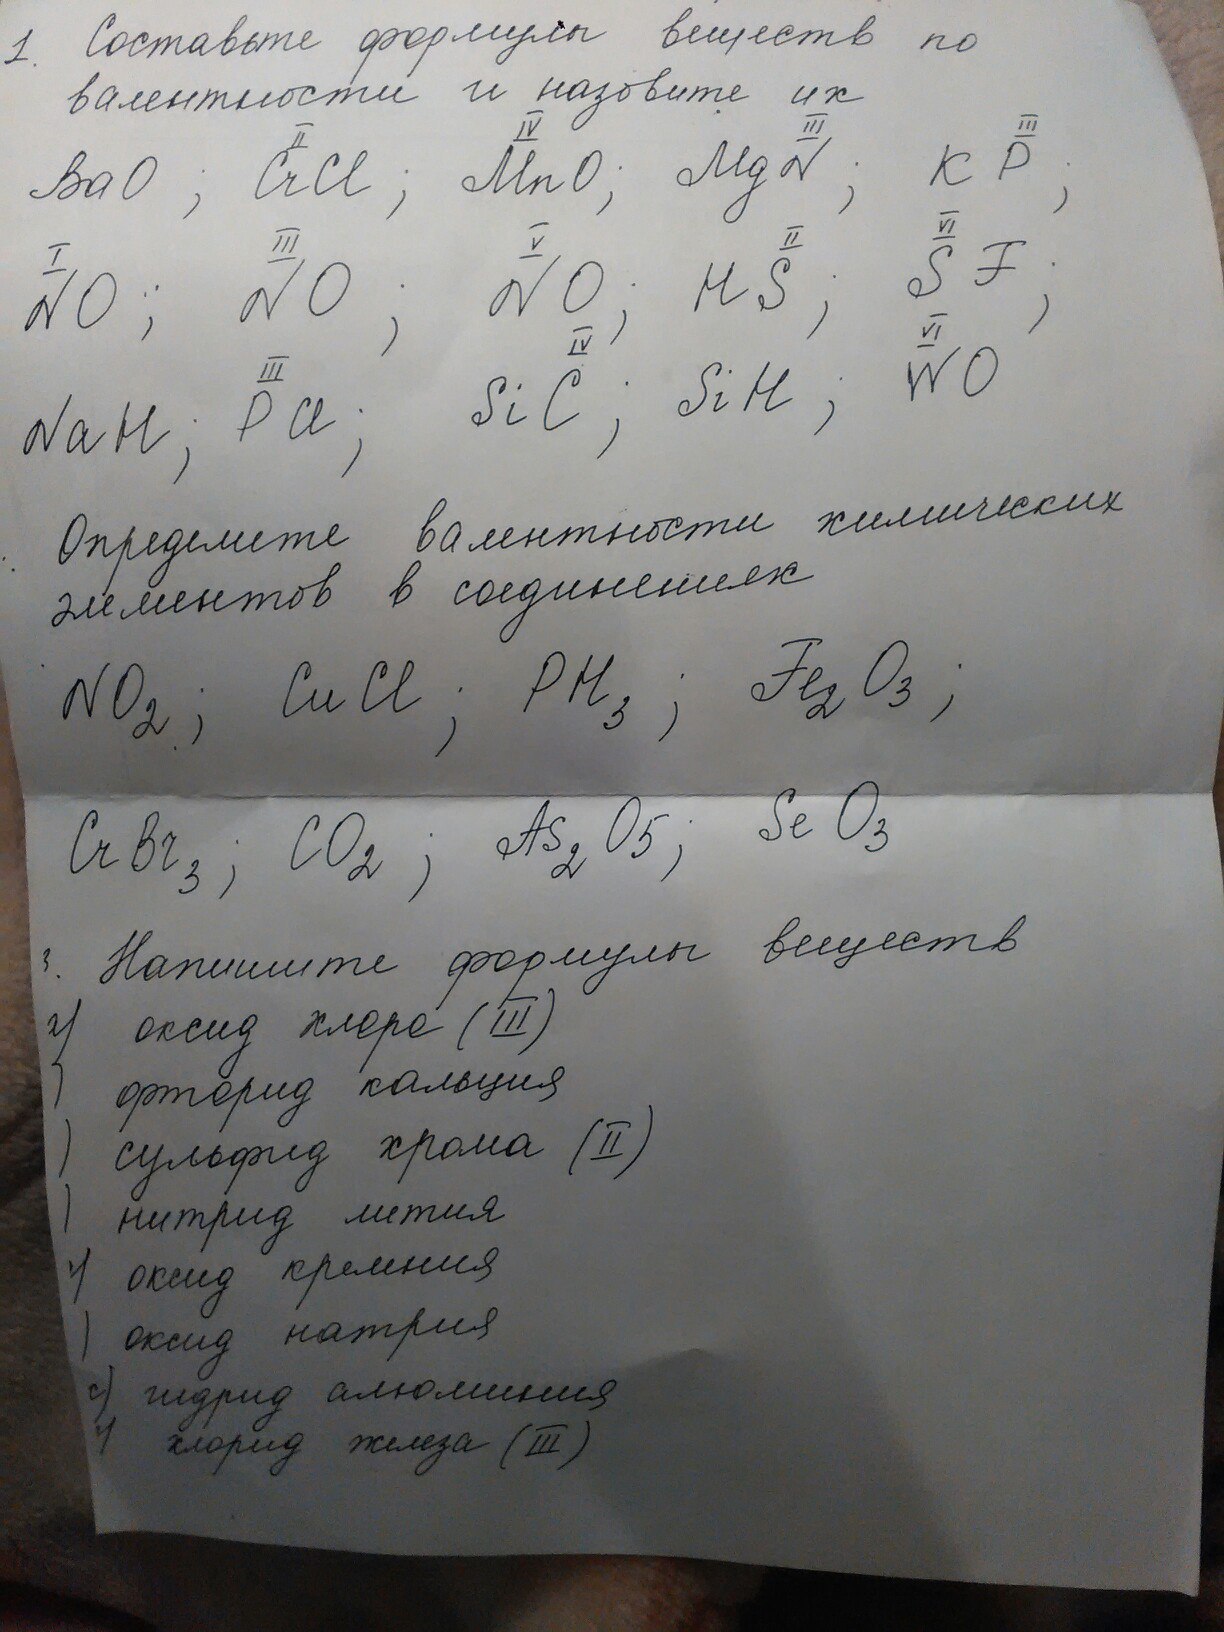 1. Составьте формулы веществ по
валентности и назовите их
II IV III III
BaO ; CrCl ; MnO; MgN ; KP ;
I III V II VI
NO ; NO ; NO ; HS ; SF ;
III IV VI
NaH ; PCl ; SiC ; SiH ; WO
Определите валентности химических
элементов в соединениях
NO2 ; CuCl ; PH3 ; Fe2O3 ;
CrBr3 ; CO2 ; As2O5 ; SeO3
3. Напишите формулы веществ
а) оксид хлора (III)
) фторид кальция
) сульфид хрома (II)
) нитрид лития
) оксид кремния
) оксид натрия
) гидрид алюминия
) хлорид железа (III)